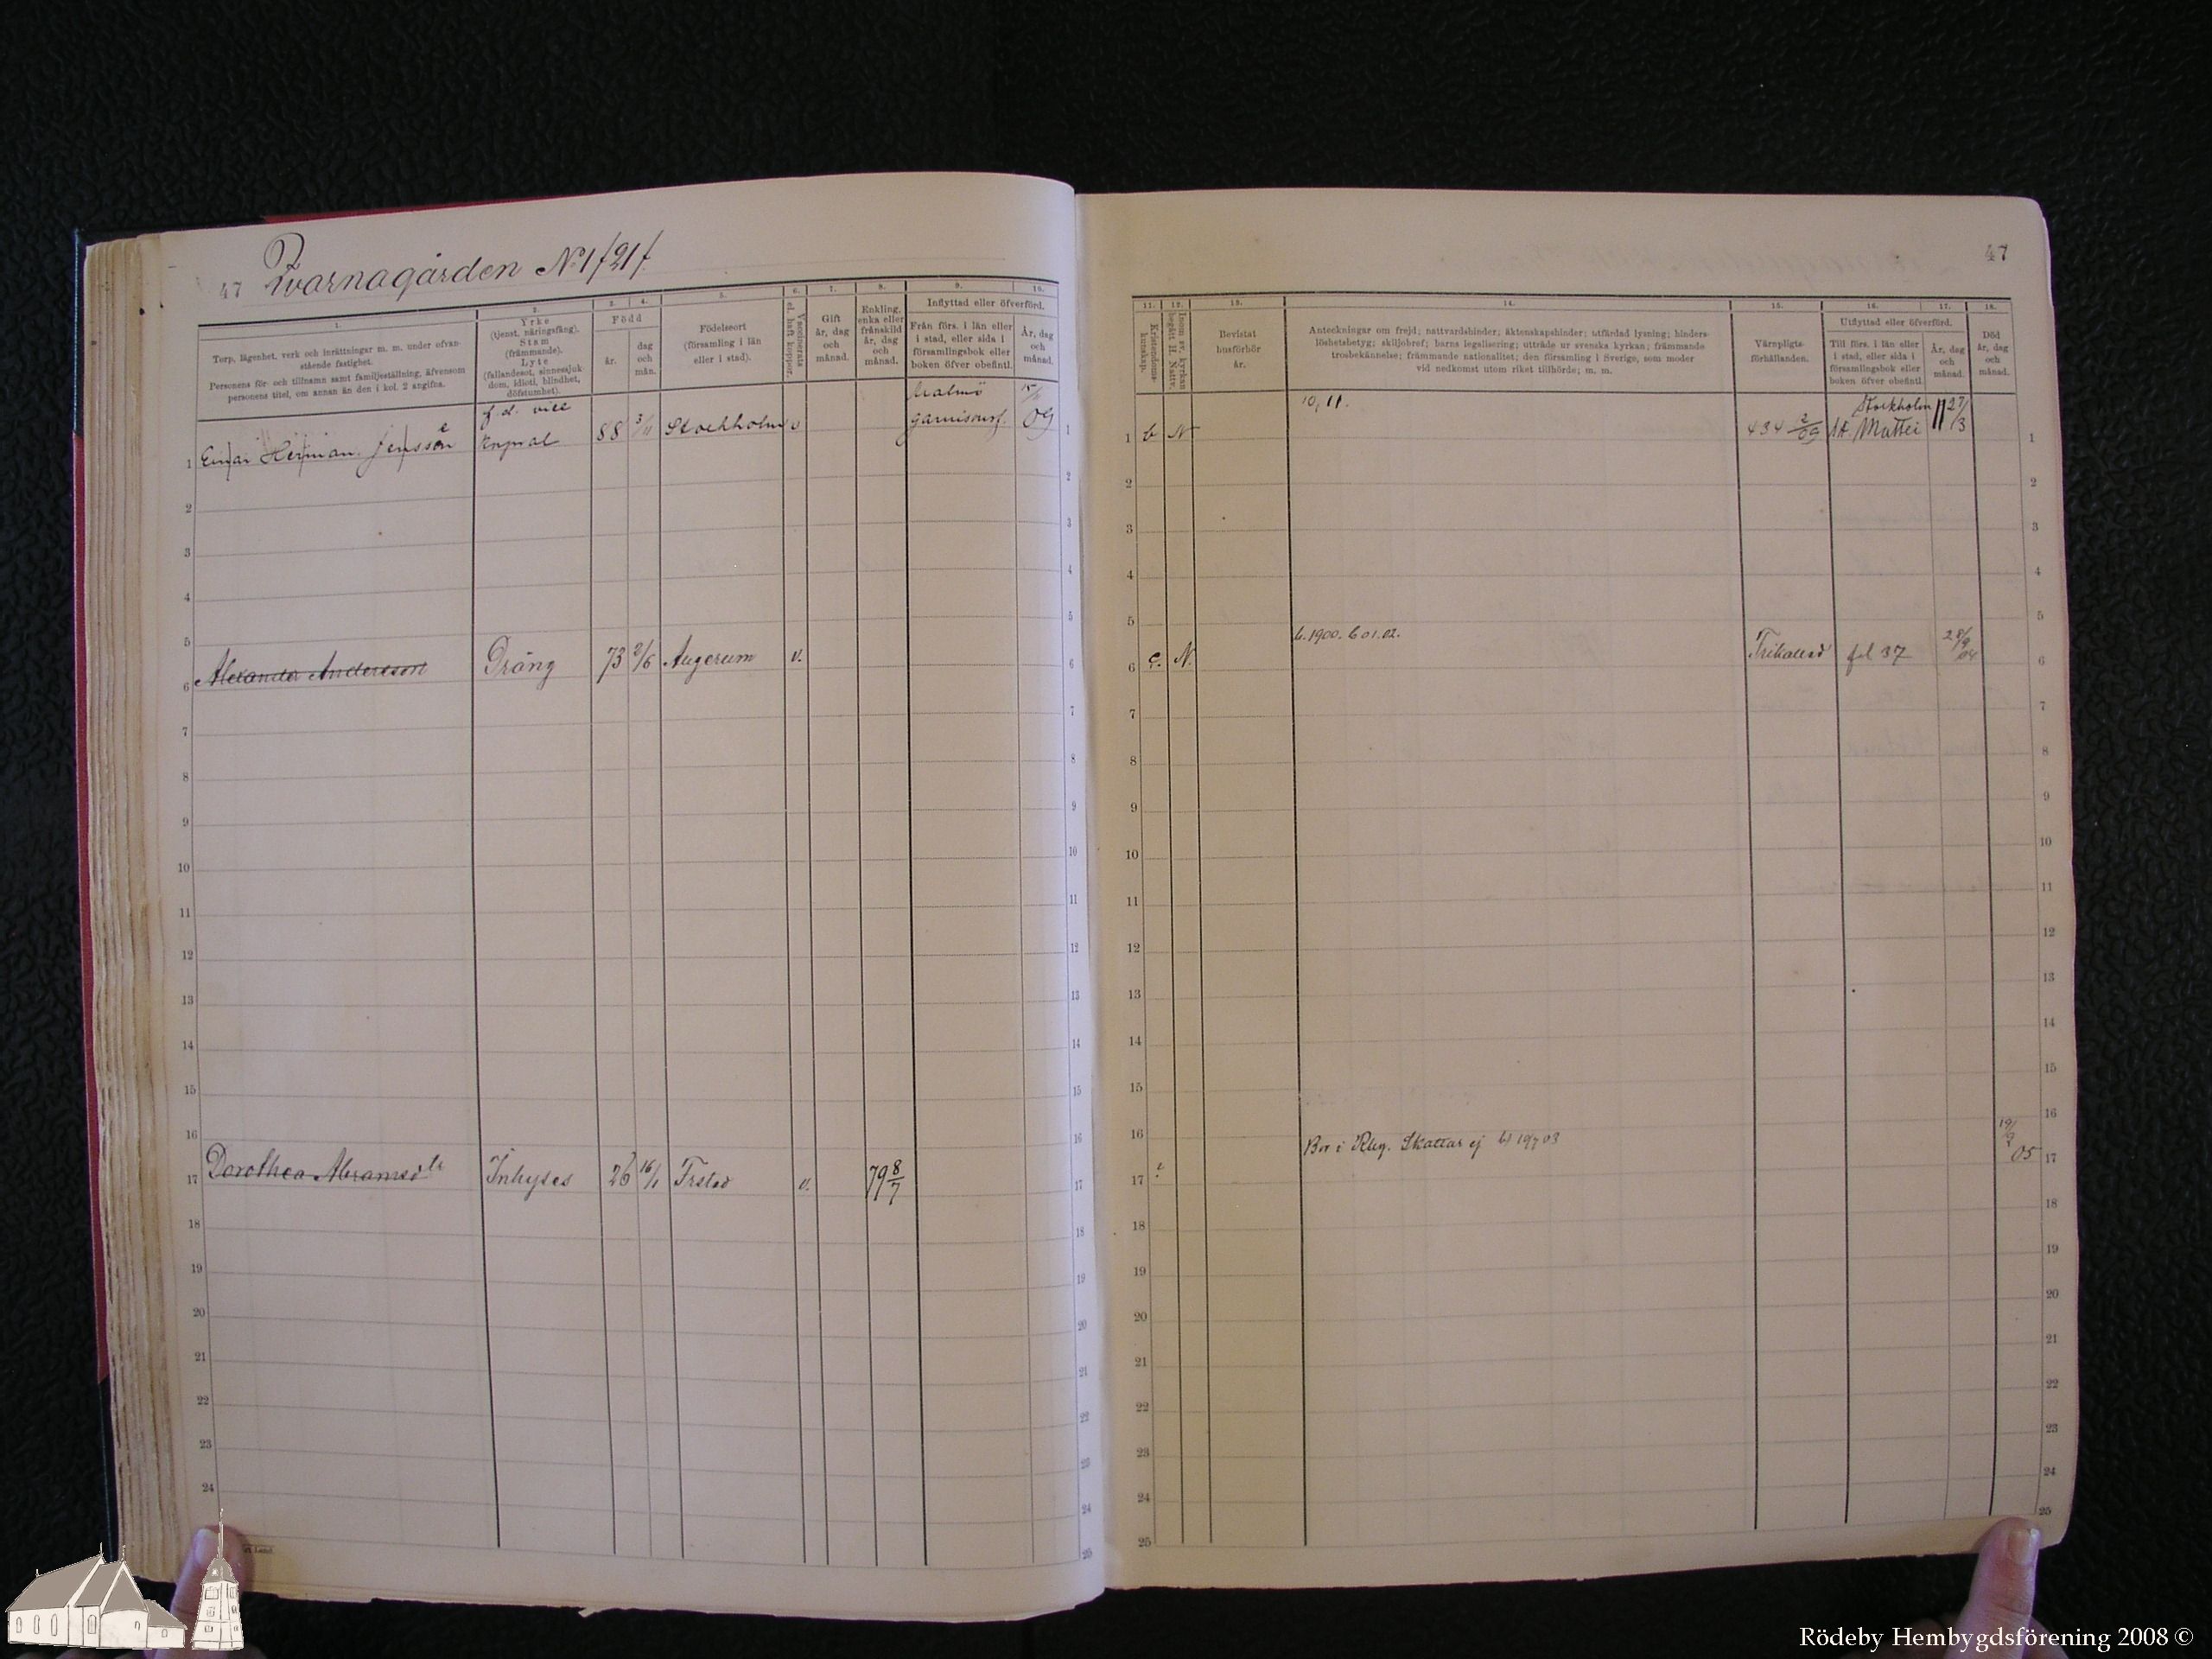 47 Qvarnagården No 1 /21/.
1. 2. 3. 4. 5. 6. 7. 8. 9. 10.
Torp, lägenhet, verk och inrättningar m. m. under ofvan-
stående fastighet.
Personens för- och tillnamn samt familjeställning, äfvensom
personens titel, om annan än den i kol. 2 angifna.
Yrke
(tjenst, näringsfång).
Stam
(främmande).
Lyte
(fallandesot, sinnessjuk-
dom, idioti, blindhet,
döfstumhet).
Född
år.
dag
och
mån.
Födelseort
(församling i län
eller i stad).
Vaccinerats
el. haft koppor.
Gift
år, dag
och
månad.
Enkling,
enka eller
frånskild
år, dag
och
månad.
Inflyttad eller öfverförd.
Från förs. i län eller
i stad, eller sida i
församlingsbok eller
boken öfver obefintl.
År, dag
och
månad.
f. d. vice Malmö
1 Herman Korpral 88 3/11 Stockholm v garnisonsf. 09 1
2 2
3 3
4 4
5 5
6 Alexander Andersson Dräng 73 2/6 Augerum v. 6
7 7
8 8
9 9
10 10
11 11
12 12
13 13
14 14
15 15
16 16
17 Dorothea Abramsdtr Inhyses 26 16/1 Frstad v. 79 8/7 17
18 18
19 19
20 20
21 21
22 22
23 23
24 24
25
47
11. 12. 13. 14. 15. 16. 17. 18.
Kristendoms-
kunskap.
Inom sv. kyrkan
begått H. Nattv.
Bevistat
husförhör
år.
Anteckningar om frejd; nattvardshinder; äktenskapshinder; utfärdad lysning; hinders-
löshetsbetyg; skiljobref; barns legalisering; utträde ur svenska kyrkan; främmande
trosbekännelse; främmande nationalitet; den församling i Sverige, som moder
vid nedkomst utom riket tillhörde; m. m.
Värnpligts-
förhållanden.
Utflyttad eller öfverförd.
Till förs. i län eller
i stad, eller sida i
församlingsbok eller
boken öfver obefintl.
År, dag
och
månad.
Död
år, dag
och
månad.
10, 11. Stockholm
1 b N 434 2/09 St. Mattei 11 27/3 1
2 2
3 3
4 4
5 b. 1900. b 01. 02. 5
6 c. N. Frikallad fol 37 28/9 04 6
7 7
8 8
9 9
10 10
11 11
12 12
13 13
14 14
15 15
16 Bor i Skattar ej 16
17 05 17
18 18
19 19
20 20
21 21
22 22
23 23
24 24
25 25
Rödeby Hembygdsförening 2008 ©